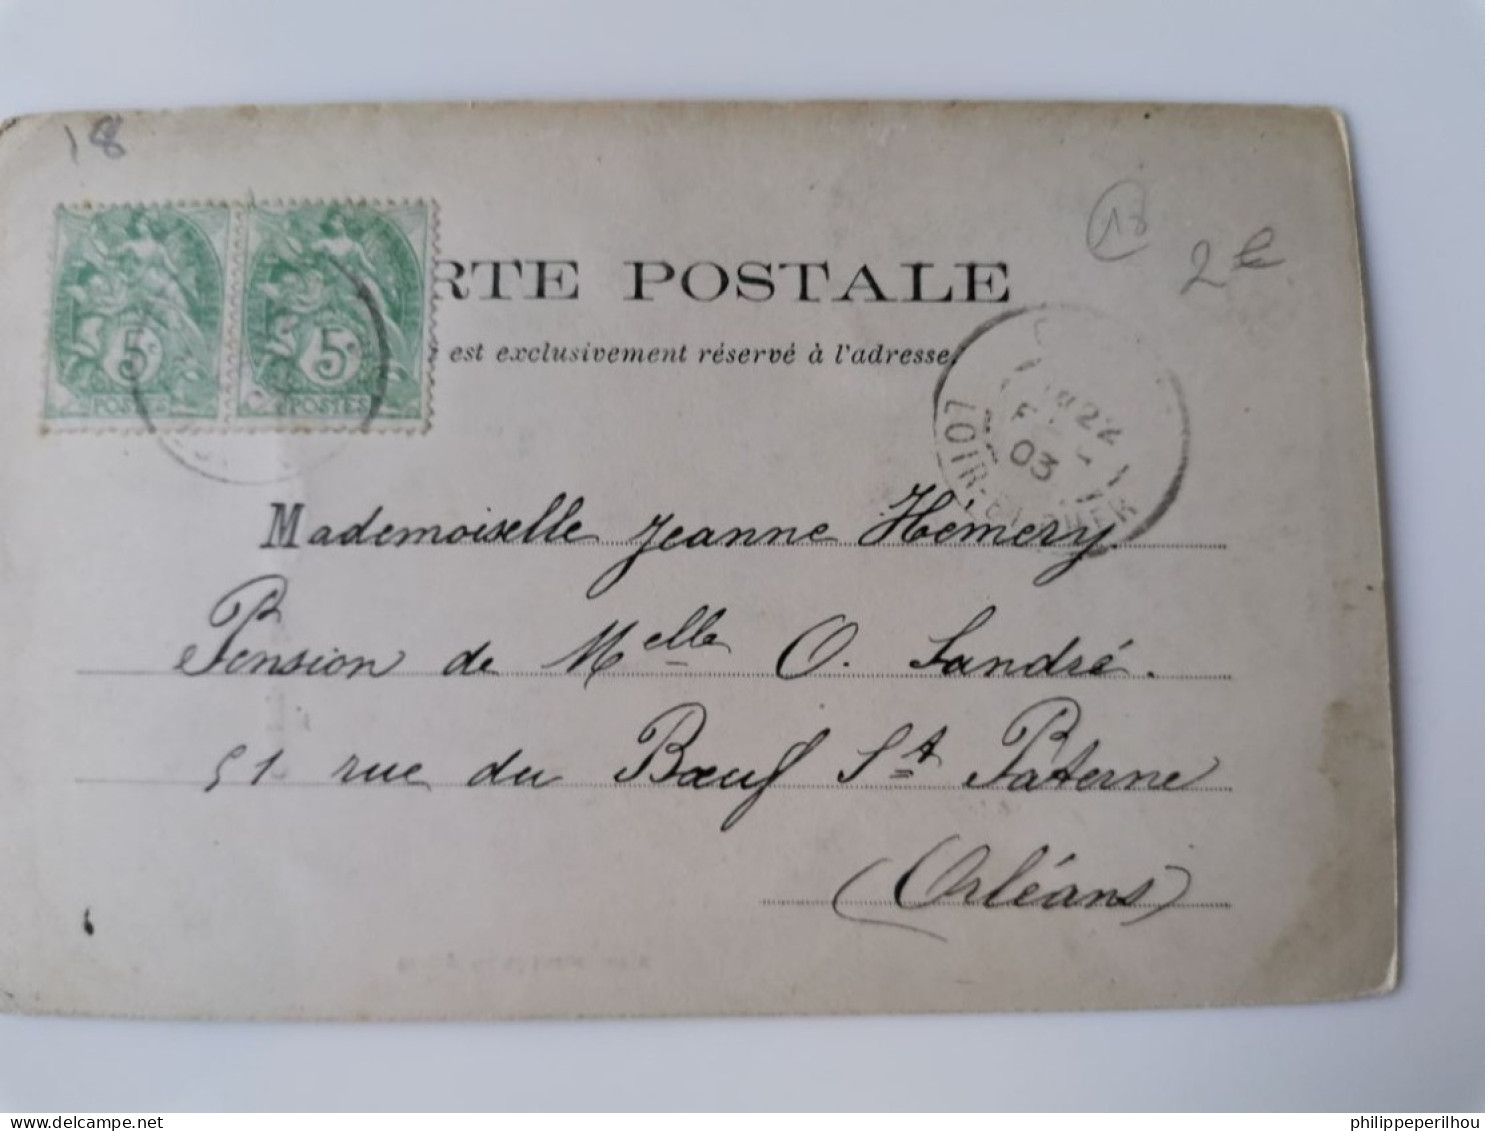 18
18
2e
RTE POSTALE
est exclusivement réservé à l'adresse.
5c 5c
POSTES POSTES
22
03
LOIR-ET-CHER
Mademoiselle Jeanne Hémery
Pension de Melle O. Landré.
51 rue du Bœuf St Paterne
(Orléans)
philippeperilhou